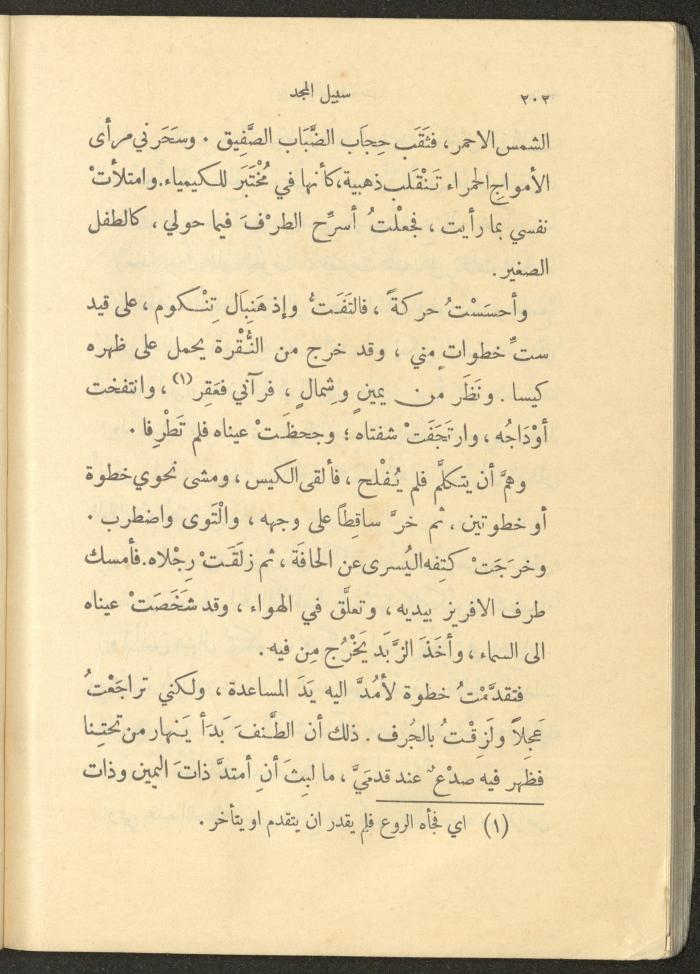 ٢٠٢ سبيل المجد
الشمس الاحمر ، فثَقَب حِجاَب الضَّبَاب الصَّفِيق . وسَحَرني مرأى
الأمواجِ الحمراء تَنْقَلب ذهبية، كأنها في مُخْتَبَر للكيمياء. وامتلأتْ
نفسي بما رأيت ، فجعلْتُ أسرِّح الطرْفَ فيما حولي ، كالطفل
الصغير .
وأحسَسْتُ حركةً ، فالتَفَتُّ وإذ هَنِبَال تِنْكوم ، على قيد
ستِّ خطواتٍ مني ، وقد خرج من النُّقْرة يحمل على ظهره
كيسا . ونَظَر من يمينٍ وشِمالٍ ، فرآني فعَقِر (١) ، وانتفخت
أوْدَاجُه ، وارتَجَفَتْ شفتاه ؛ وجحظَتْ عيناه فلم تَطْرِفا .
وهمَّ أن يتكلَّم فلم يُفْلح ، فألقى الكيس ، ومشى نحوي خطوة
أو خطوتين ، ثم خرَّ ساقِطاً على وجهه ، والْتَوى واضطرب .
وخرَجَتْ كتِفه اليُسرى عن الحافَة ، ثم زلَقَتْ رِجْلاه. فأمسك
طرف الافريز بيديه ، وتعلَّق في الهواء ، وقد شَخَصَتْ عيناه
الى السماء ، وأخَذَ الزَّبَد يَخْرُج مِن فيه .
فتقدَّمْتُ خطوة لأمُدَّ اليه يَدَ المساعدة ، ولكني تراجَعْتُ
عَجِلاً ولَزِقْتُ بالجُرف . ذلك أن الطَّنفَ بَدَأ يَنهار من تحتِنا
فظهر فيه صدْعٌ عند قدمَيَّ ، ما لبِثَ أنِ أمتدَّ ذاتَ اليمين وذات
(١) اي فجأه الروع فلم يقدر ان يتقدم او يتأخر .